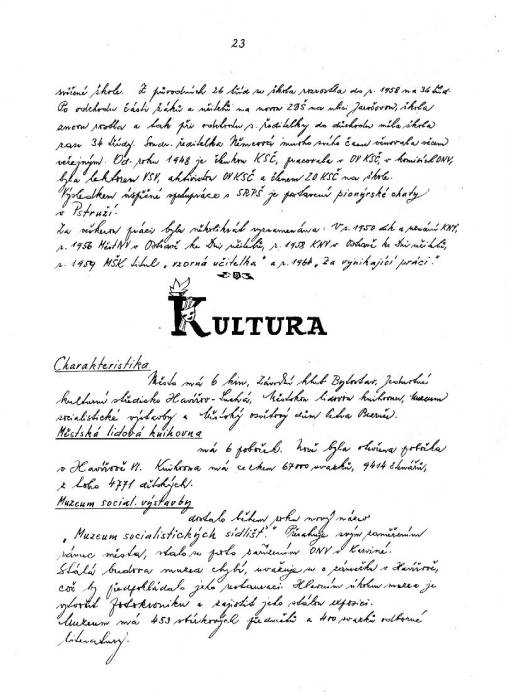 23
svěřené škole. Z původních 26 tříd se škola rozrostla do r. 1958 na 36 tříd.
Po odchodu části žáků a učitelů na novou ZDŠ na ulici Jarošovou, škola
znovu rostla a tak při odchodu s. ředitelky do důchodu měla škola
zase 34 třídy. Soudr. ředitelka Němcová mnoho svého času věnovala věcem
veřejným. Od roku 1948 je členkou KSČ, pracovala v OV KSČ v komisích ONV,
byla lektorem VSV, aktivistou OV KSČ a členem ZO KSČ na škole.
Výsledkem úspěšné spolupráce s SRPŠ je postavení pionýrské chaty
v Pstruží.
Za něhož práci byla několikrát vyznamenána: V r. 1950 dík a uznání KNV,
r. 1956 Měst NV v Ostravě ke Dni učitelů, r. 1958 KNV v Ostravě ke Dni učitelů,
r. 1959 MŠK titul „vzorná učitelka" a r. 1961 „Za vynikající práci."
KULTURA
Charakteristika
Město má 6 kin, Závodní klub Bytostav, Jednotné
kulturní středisko Havířov-Suchá, Městskou lidovou knihovnu, Muzeum
socialistické výstavby a Městský osvětový dům Petra Bezruče.
Městská lidová knihovna
má 6 poboček. Nově byla otevřena pobočka
v Havířově VI. Knihovna má celkem 67000 svazků, 9414 čtenářů,
z toho 4771 dětských.
Muzeum social. výstavby
dostalo během roku nový název
„Muzeum socialistických sídlišť." Přesahuje svým zaměřením
rámec města, stalo se proto zařízením ONV v Karviné.
Stálá budova muzea chybí, uvažuje se o zámečku v Havířově,
což by předpokládalo jeho restauraci. Hlavním úkolem muzea je
vytvořit fotokroniku a zajistit jeho stálou expozici.
Muzeum má 453 sbírkových předmětů a 400 svazků odborné
literatury.